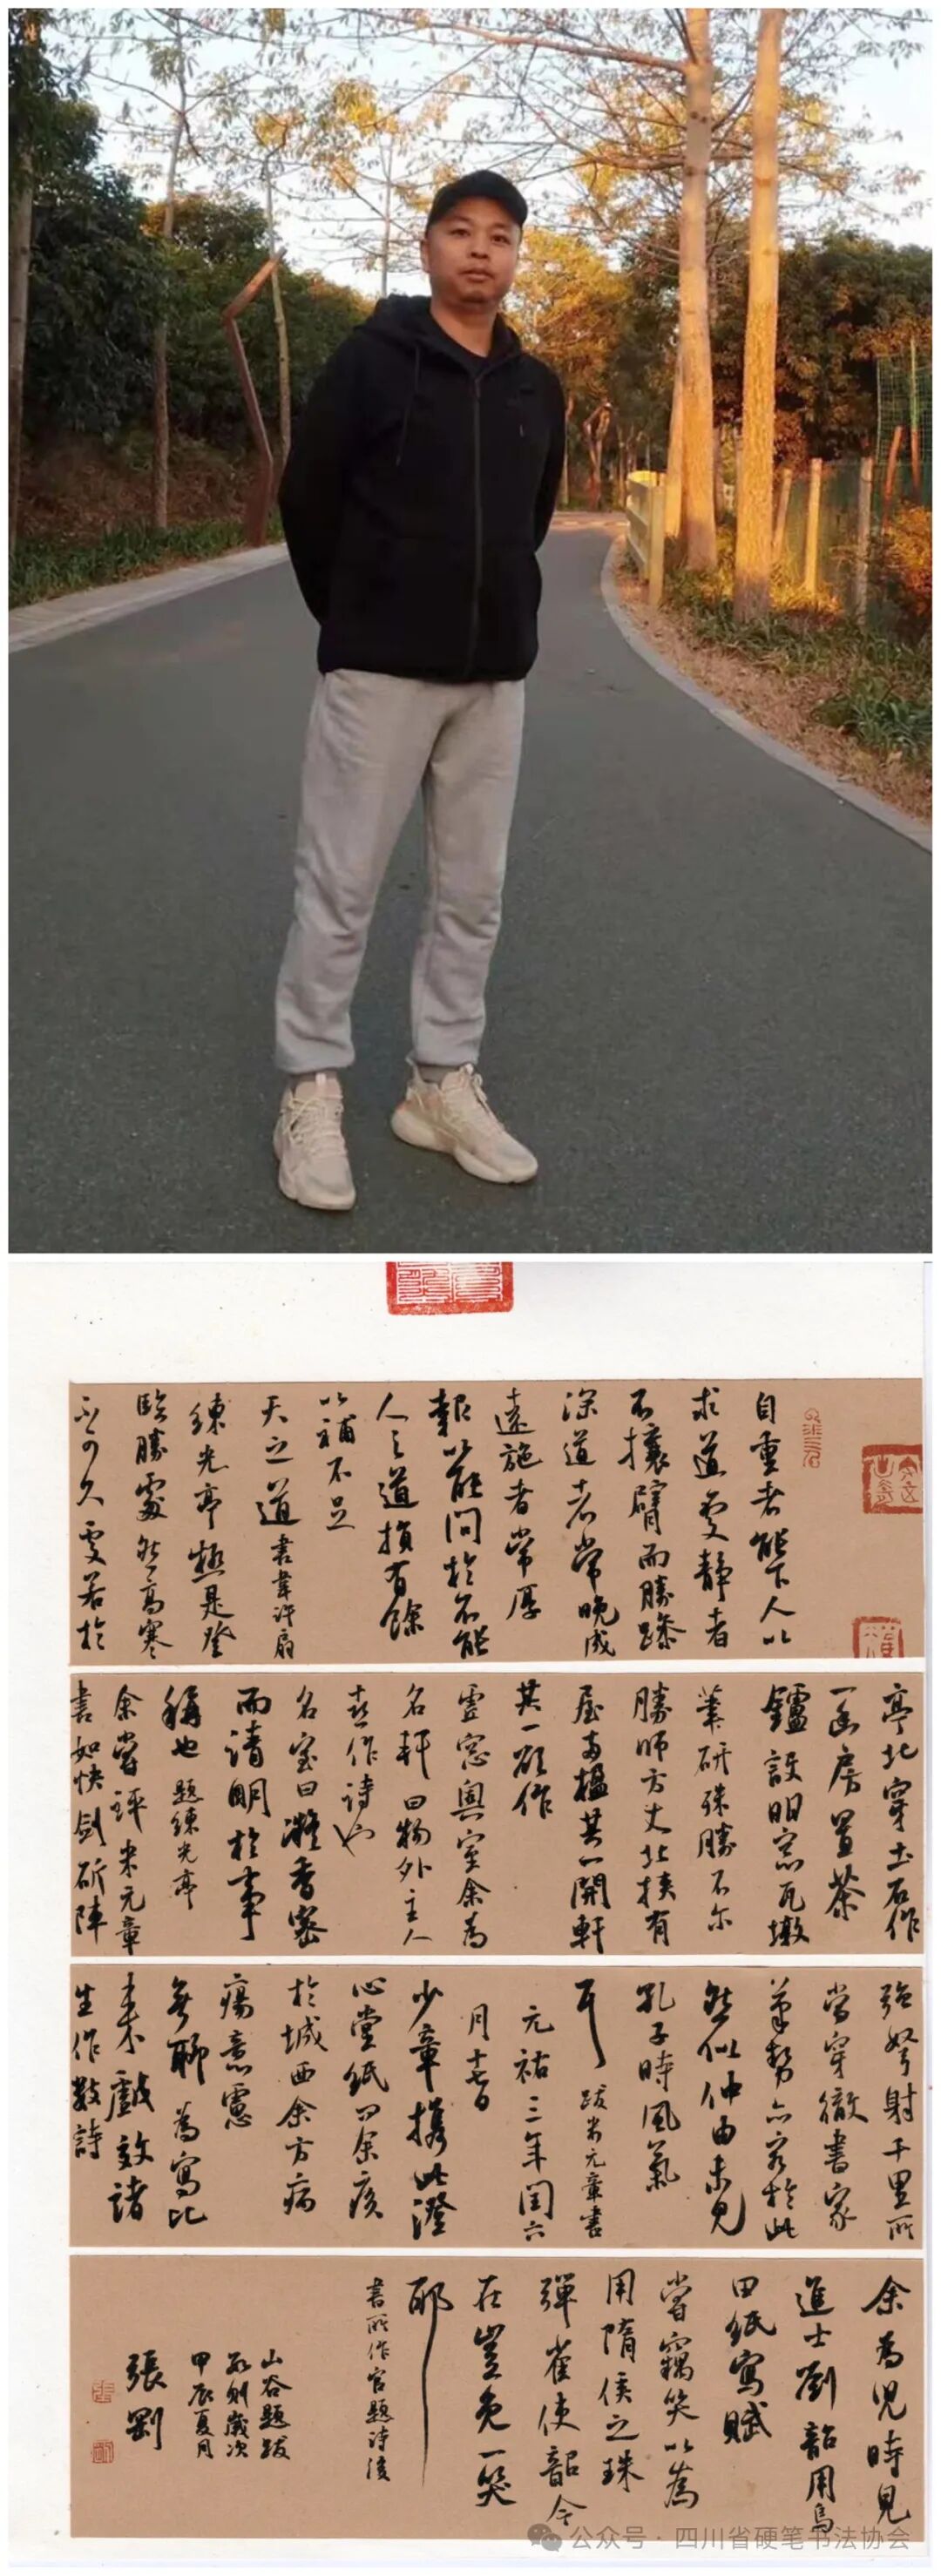 自重者能下人以
求道要静者
不攘臂而勝躁
深道者常晚成
遠施者常厚
報以能问於不能
人之道損有餘
以補不足
天之道 書韋許扇
練光亭極是登
臨勝處然高寒
不可久要若於
亭北穿土石作
一函房置茶
鑪設明窓瓦墩
筆研殊勝不尔
勝師方丈北挟有
屋两楹其一開軒
其一欲作
虚窓奥室余為
名軒曰物外主人
喜作诗也
名室曰凝香密
而清明於事
稱也 題練光亭
余嘗評米元章
書如快劍斫陣
強弩射千里所
當穿徹書家
筆勢亦窮於此
然似仲由未見
孔子時風氣
耳 跋米元章書
元祐三年閏六
月十七日
少章攜此澄
心堂紙曰余疾
於城西余方病
瘍意慮
無聊為寫比
来戲效諸
生作数詩
余為児時見
進士劉韶用烏
田紙寫賦
嘗竊笑以為
用隋侯之珠
彈雀使韶令
在豈免一笑
耶
書所作官題詩後
山谷題跋
数則歲次
甲辰夏月
張剛
公众号·四川省硬笔书法协会